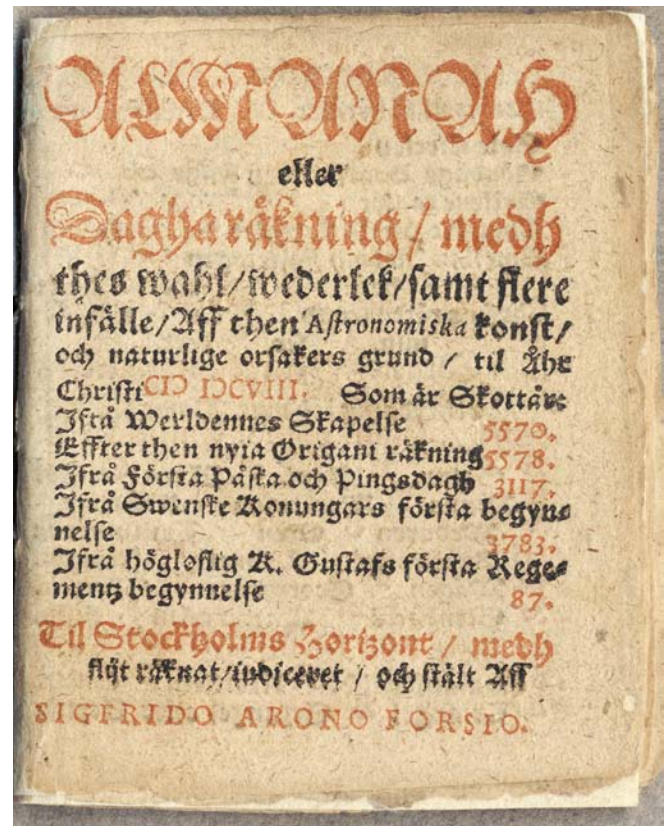 ALMANAH
eller
Dagharäkning / medh
thes wahl/wederlek/samt flere
infälle/Aff then Astronomiska konst/
och naturlige orsakers grund / til Åhr
Christi CIↃ IↃCVIII. Som är Skottår:
Ifrå Werldennes Skapelse 5570.
Effter then nyia Origani räkning 5578.
Ifrå Första Påska och Pingsdagh 3117.
Ifrå Swenske Konungars första begyn⸗
nelse 3783.
Ifrå högloflig K. Gustafs första Rege⸗
mentz begynnelse 87.
Til Stockholms Horizont / medh
flijt räknat/iudiceret / och stält Aff
SIGFRIDO ARONO FORSIO.